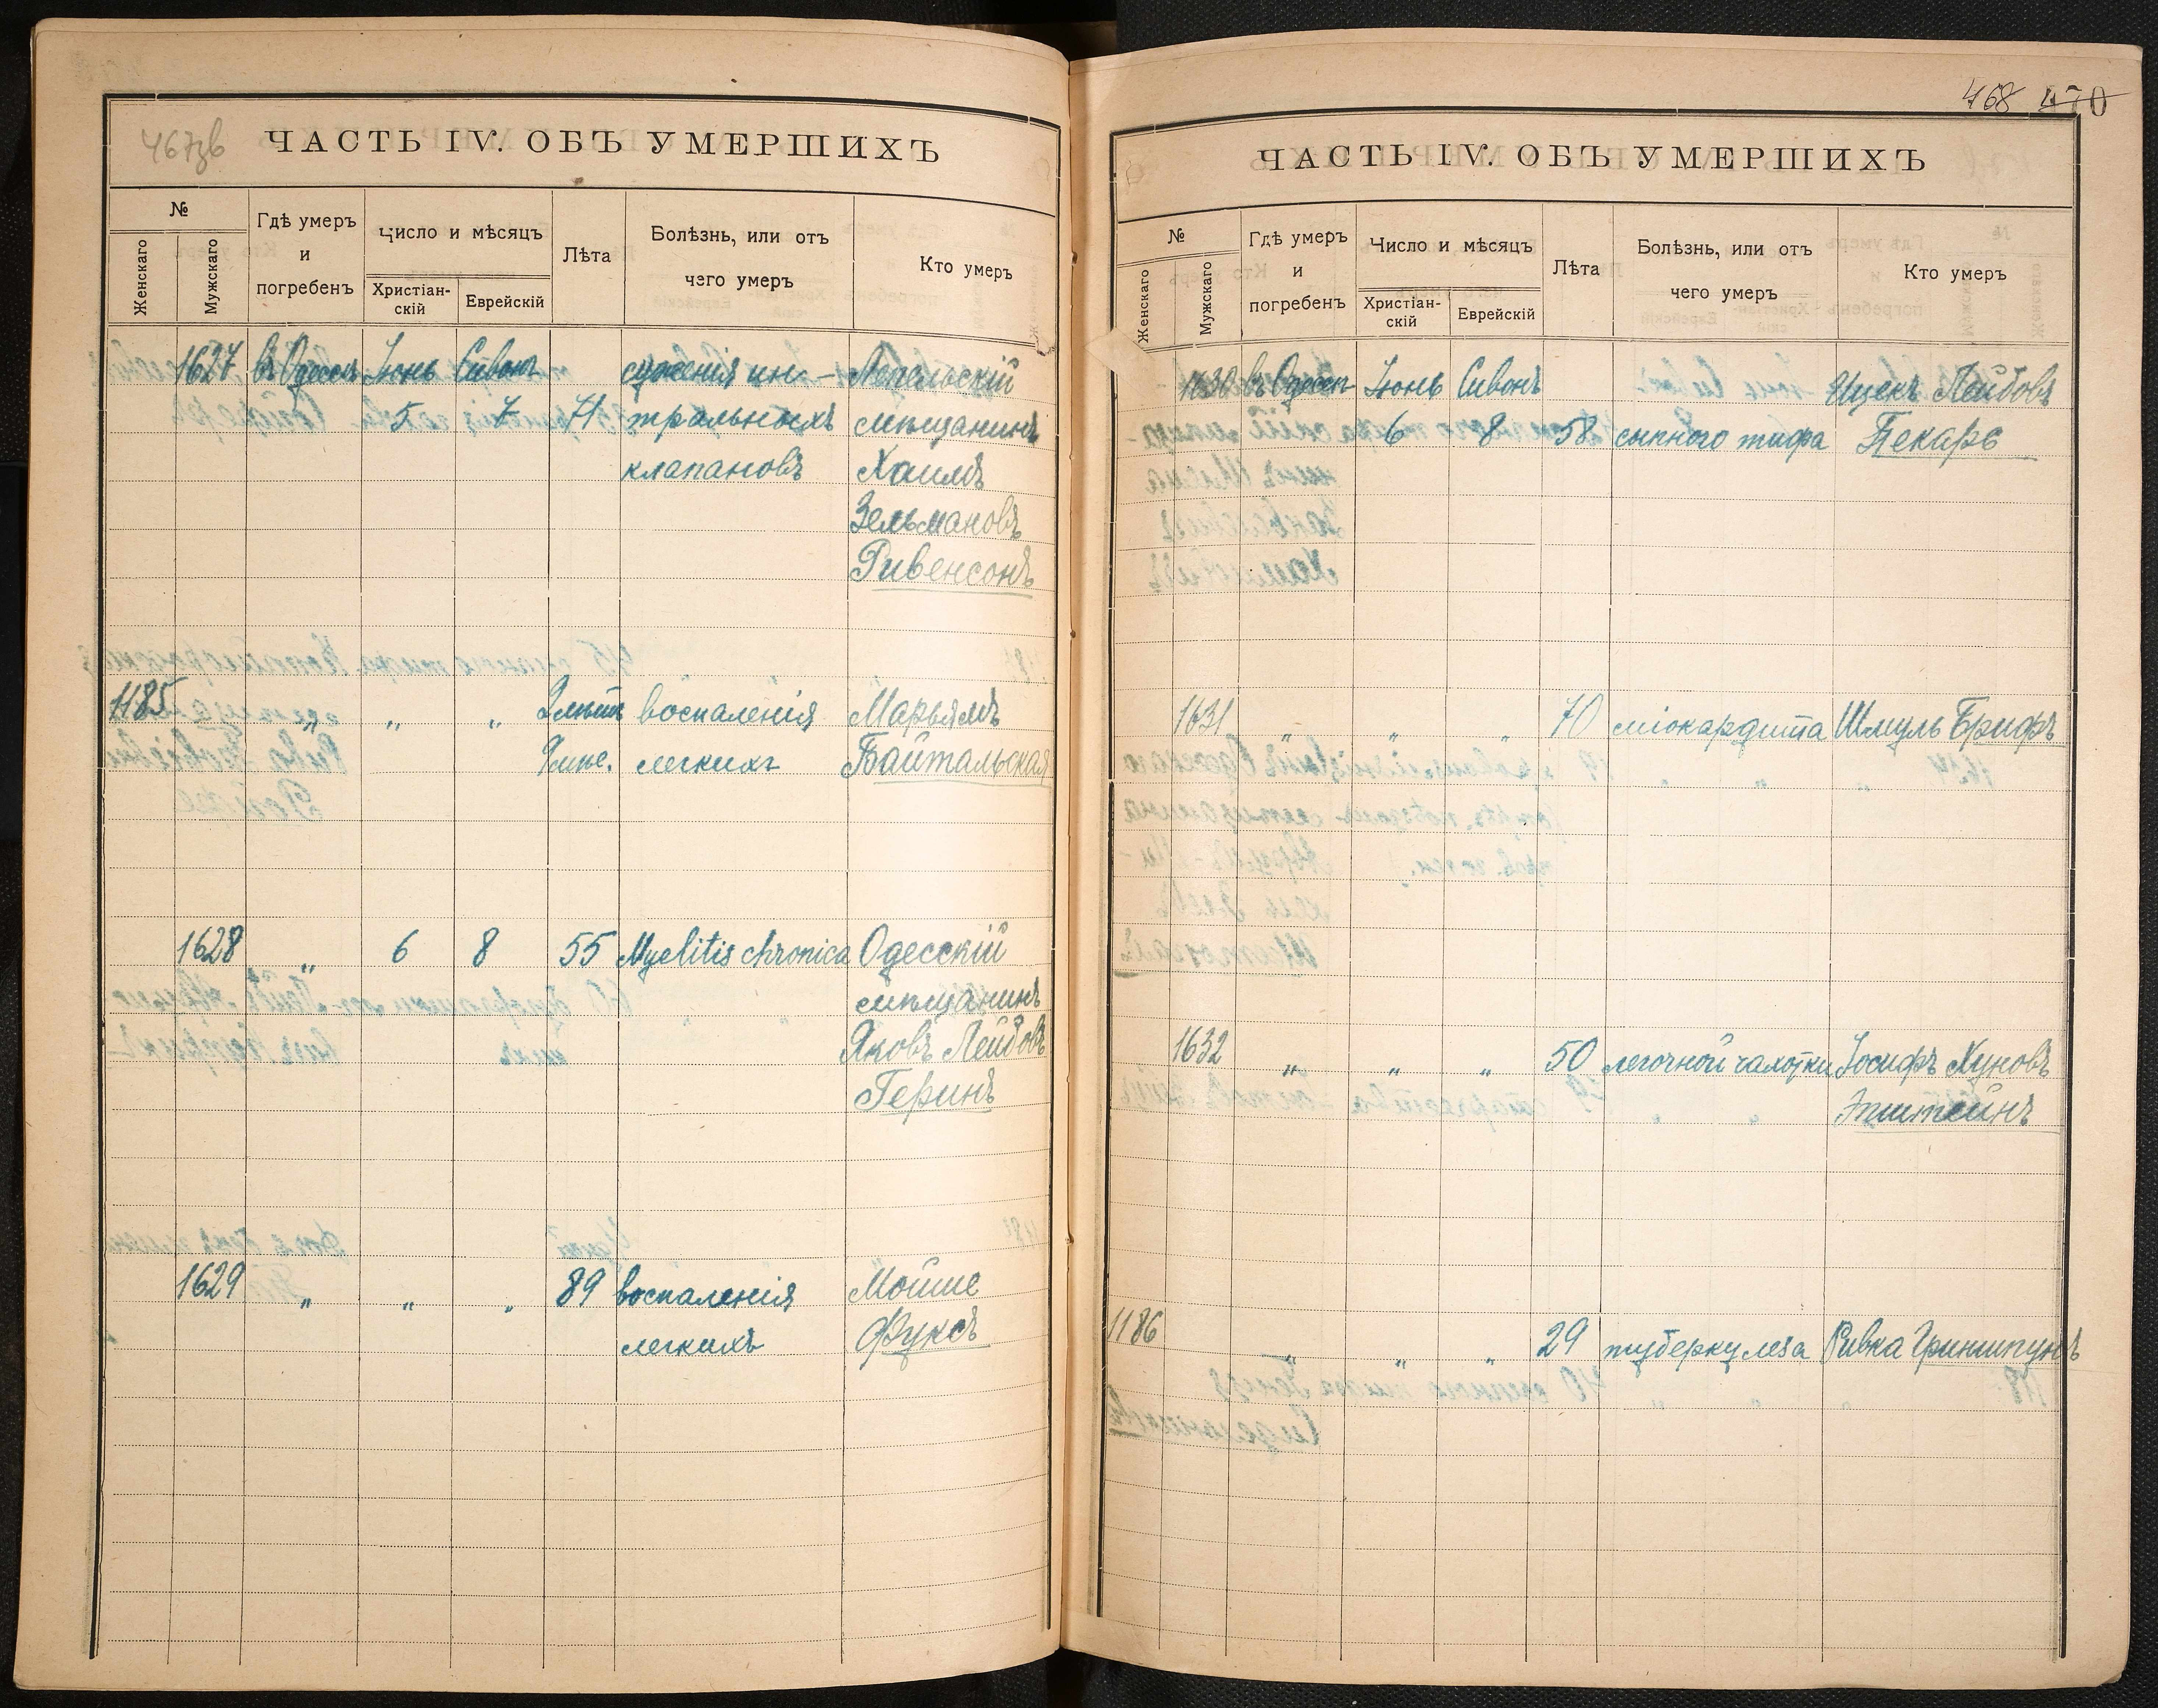 467зв
ЧАСТЬ IV. ОБЪ УМЕРШИХЪ
№
Женскаго
Мужскаго
Гдѣ умеръ
и
погребенъ
Число и мѣсяцъ
Христіан-
скій
Еврейскій
Лѣта
Болѣзнь, или отъ
чего умеръ
Кто умеръ
1627 въ Одессѣ Іюнь Сивонъ суженія ми- Лепельскій
5 7 71 тральныхъ мѣщанинъ
клапановъ Хаимъ
Зельмановъ
Ривенсонъ
1185 „ „ „ 2 лѣтъ воспаленія Марьямъ
9 мѣс. легкихъ Байтальская
1628 „ 6 8 55 Myelitis chronica Одесскій
мѣщанинъ
Яковъ Лейбовъ
Геринъ
1629 „ „ „ 89 воспаленія Мойше
легкихъ Фуксъ
468 470
ЧАСТЬ IV. ОБЪ УМЕРШИХЪ
№
Женскаго
Мужскаго
Гдѣ умеръ
и
погребенъ
Число и мѣсяцъ
Христіан-
скій
Еврейскій
Лѣта
Болѣзнь, или отъ
чего умеръ
Кто умеръ
1630 въ Одессѣ Іюнь Сивонъ Ицекъ Лейбовъ
6 8 58 сыпного тифа Пекарь
1631 „ „ „ 70 міокардита Шмуль Брифъ
1632 „ „ „ 50 легочной чахотки Іосифъ Хуновъ
Эпштейнъ
1186 „ „ „ 29 туберкулеза Ривка Гриншпунъ